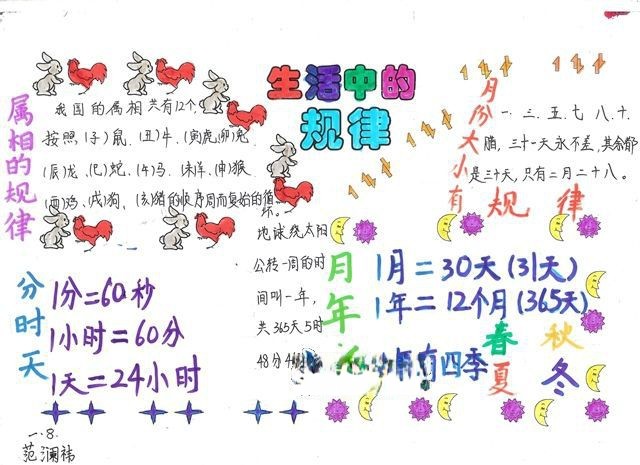 生活中的
规律
属相的规律
我国的属相共有12个,
按照(子)鼠、(丑)牛、(寅)虎(卯)兔
(辰)龙、(巳)蛇、(午)马、(未)羊、(申)猴、
(酉)鸡、(戌)狗、(亥)猪的顺序周而复始的循
环。
月份大小有
规律
一、三、五、七、八、十、
腊,三十一天永不差,其余都
是三十天,只有二月二十八。
分时天
1分=60秒
1小时=60分
1天=24小时
地球绕太阳
公转一周的时
间叫一年,
共365天5时
48分
月年
1月=30天(31天)
1年=12个月(365天)
有四季
春夏
秋冬
一.8.
范澜祎